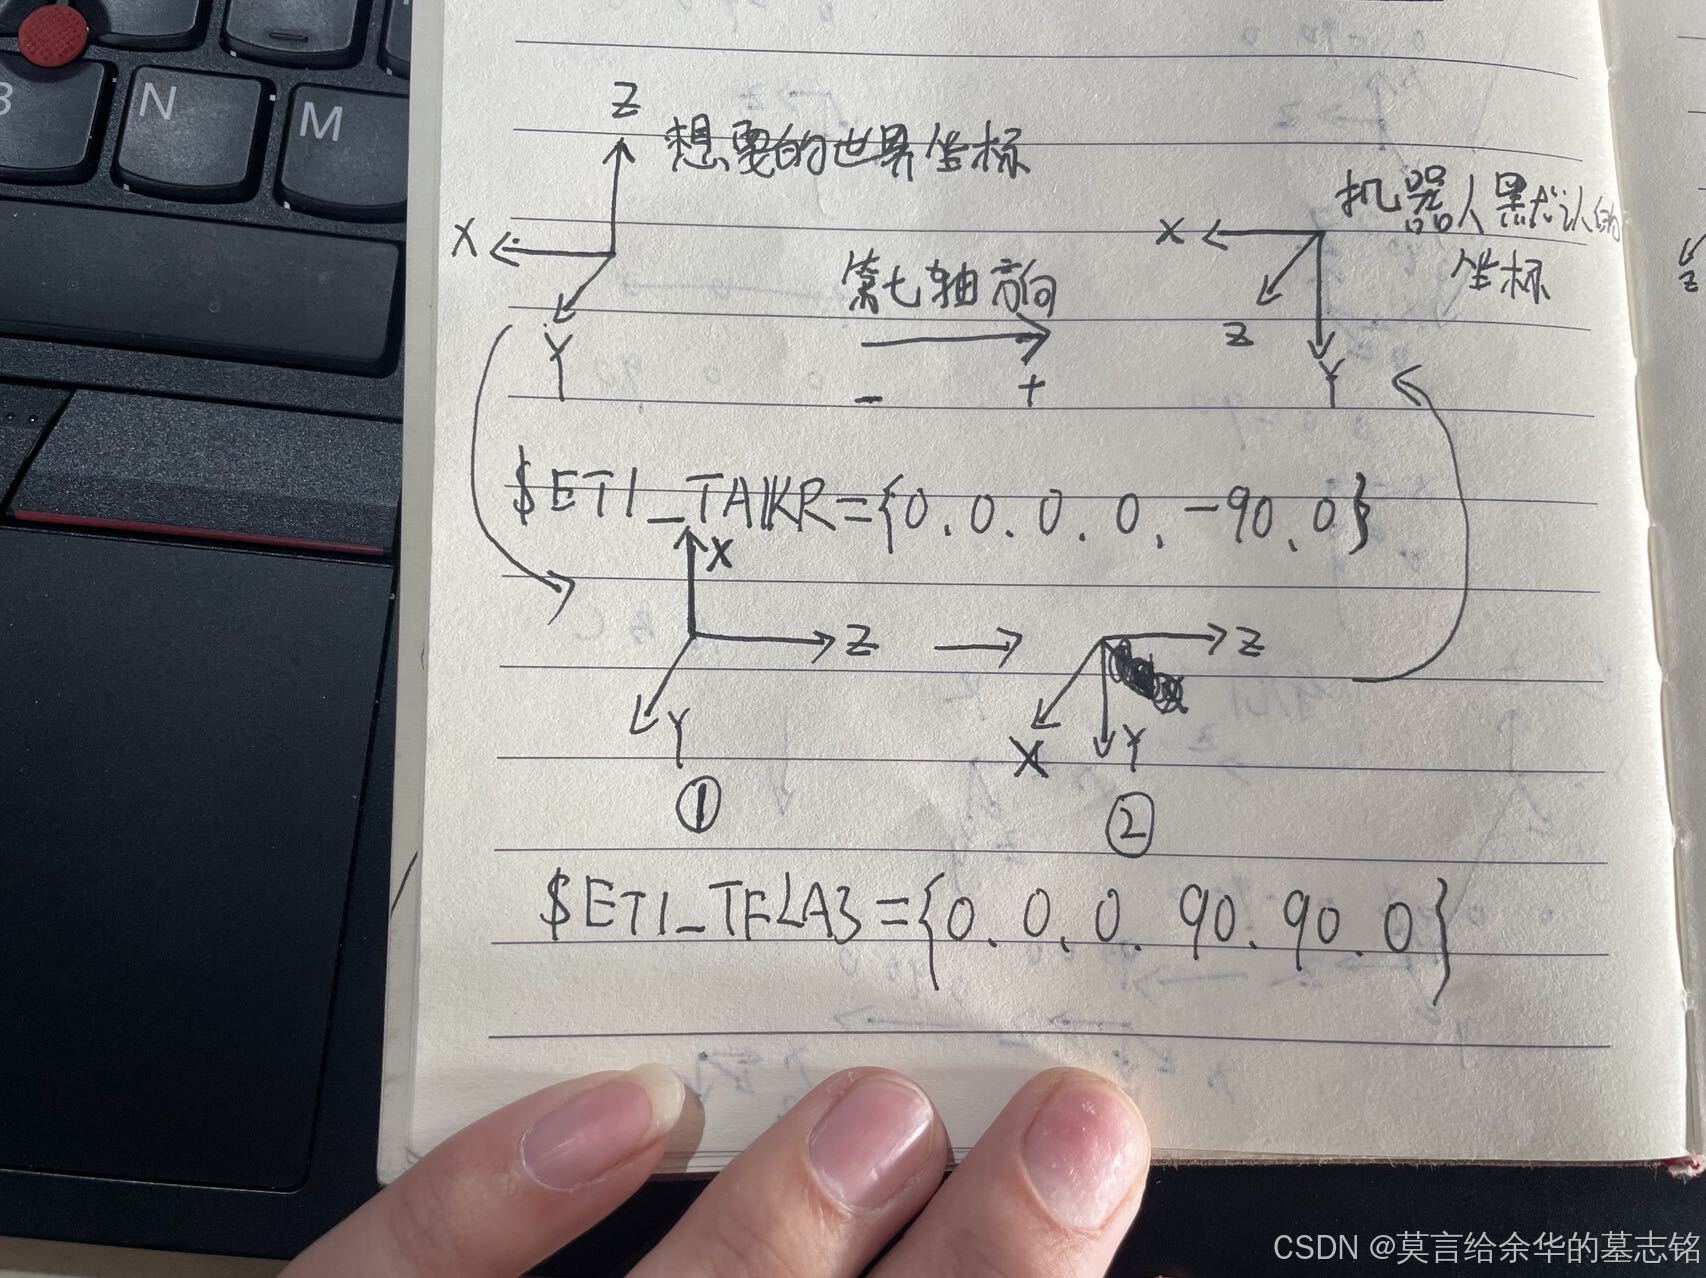 B N M
Z
想要的世界坐标
X
Y
第七轴方向
- +
机器人默认的
坐标
X
Z
Y
$ET1_TA1KR={0.0.0.0.-90.0}
X
Z
Y
①
Z
X
Y
②
$ET1_TFLA3={0.0.0.90.90.0}
CSDN @莫言给余华的墓志铭